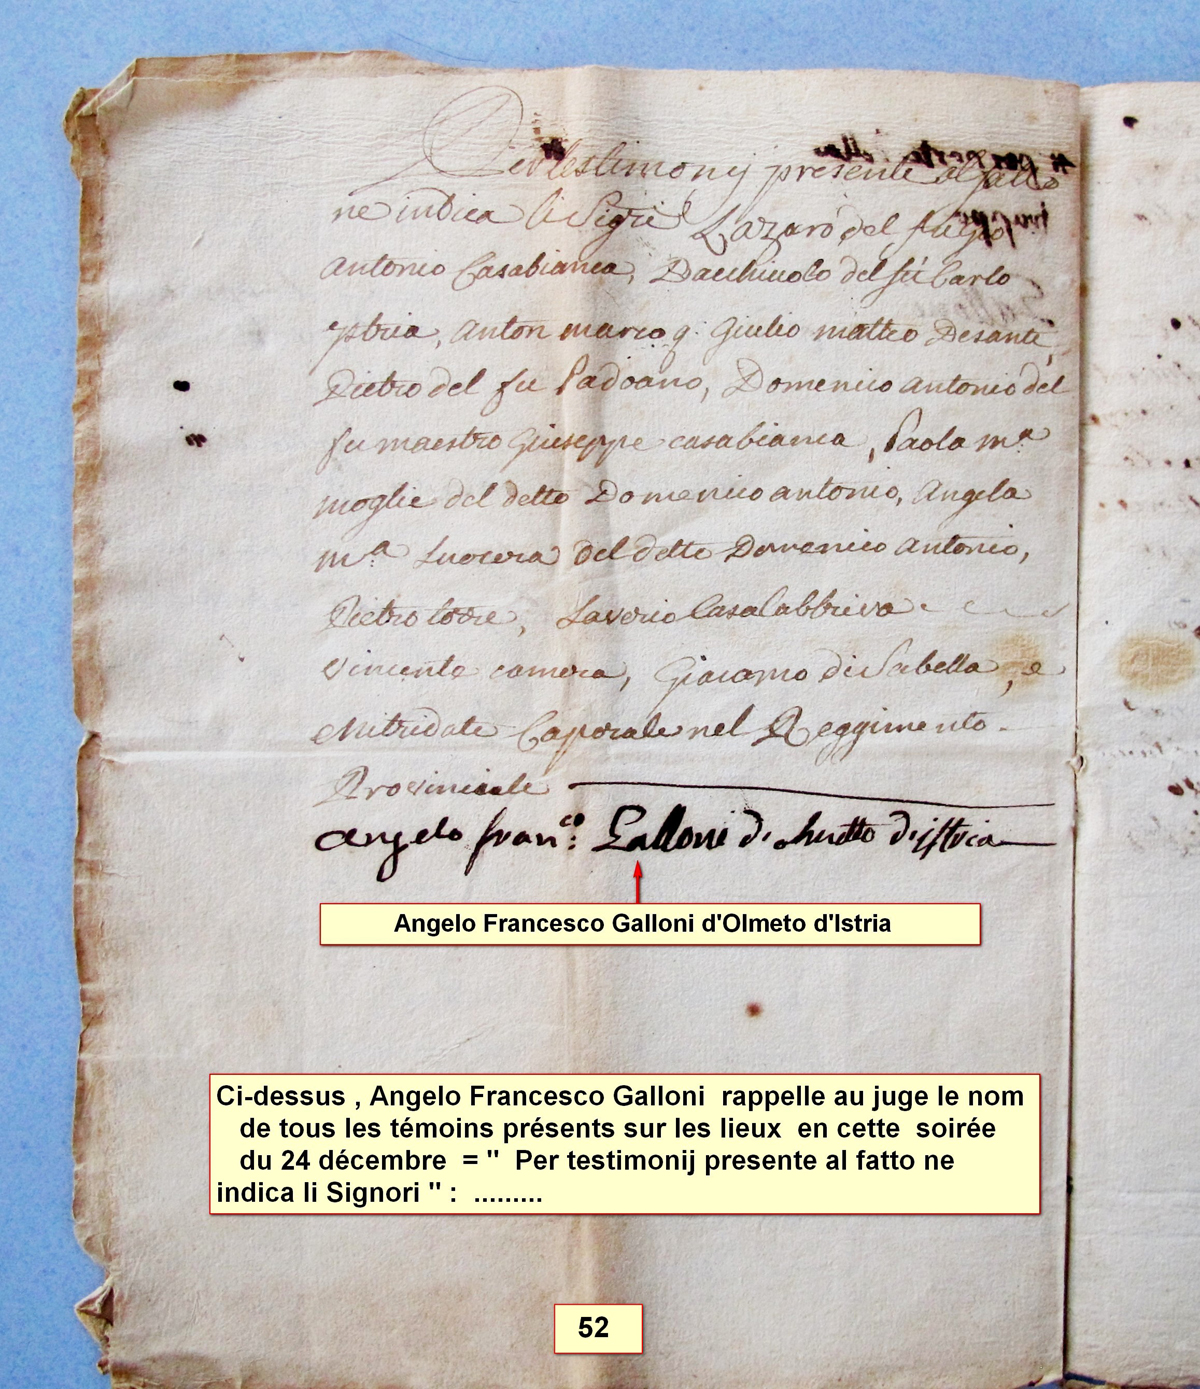 Per testimonij presente al fatto
ne indica li Sig.ri Lazaro del fu
Antonio Casabianca, Dacchiuolo del fu Carlo
istria, Anton marco q. Giulio matteo Desanti,
Pietro del fu Padoano, Domenico antonio del
fu maestro Giuseppe casabianca, Paola m.a
moglie del detto Domenico antonio, Angela
m.a Suocera del detto Domenico Antonio,
Pietro torre, Saverio Casalabbriva
Vincente camera, Giacomo di Sabella, e
Mitridate Caporale nel Reggimento
Provinciale
angelo fran.co Galloni d'istria
Angelo Francesco Galloni d'Olmeto d'Istria
Ci-dessus , Angelo Francesco Galloni rappelle au juge le nom
de tous les témoins présents sur les lieux en cette soirée
du 24 décembre = " Per testimonij presente al fatto ne
indica li Signori " : .........
52